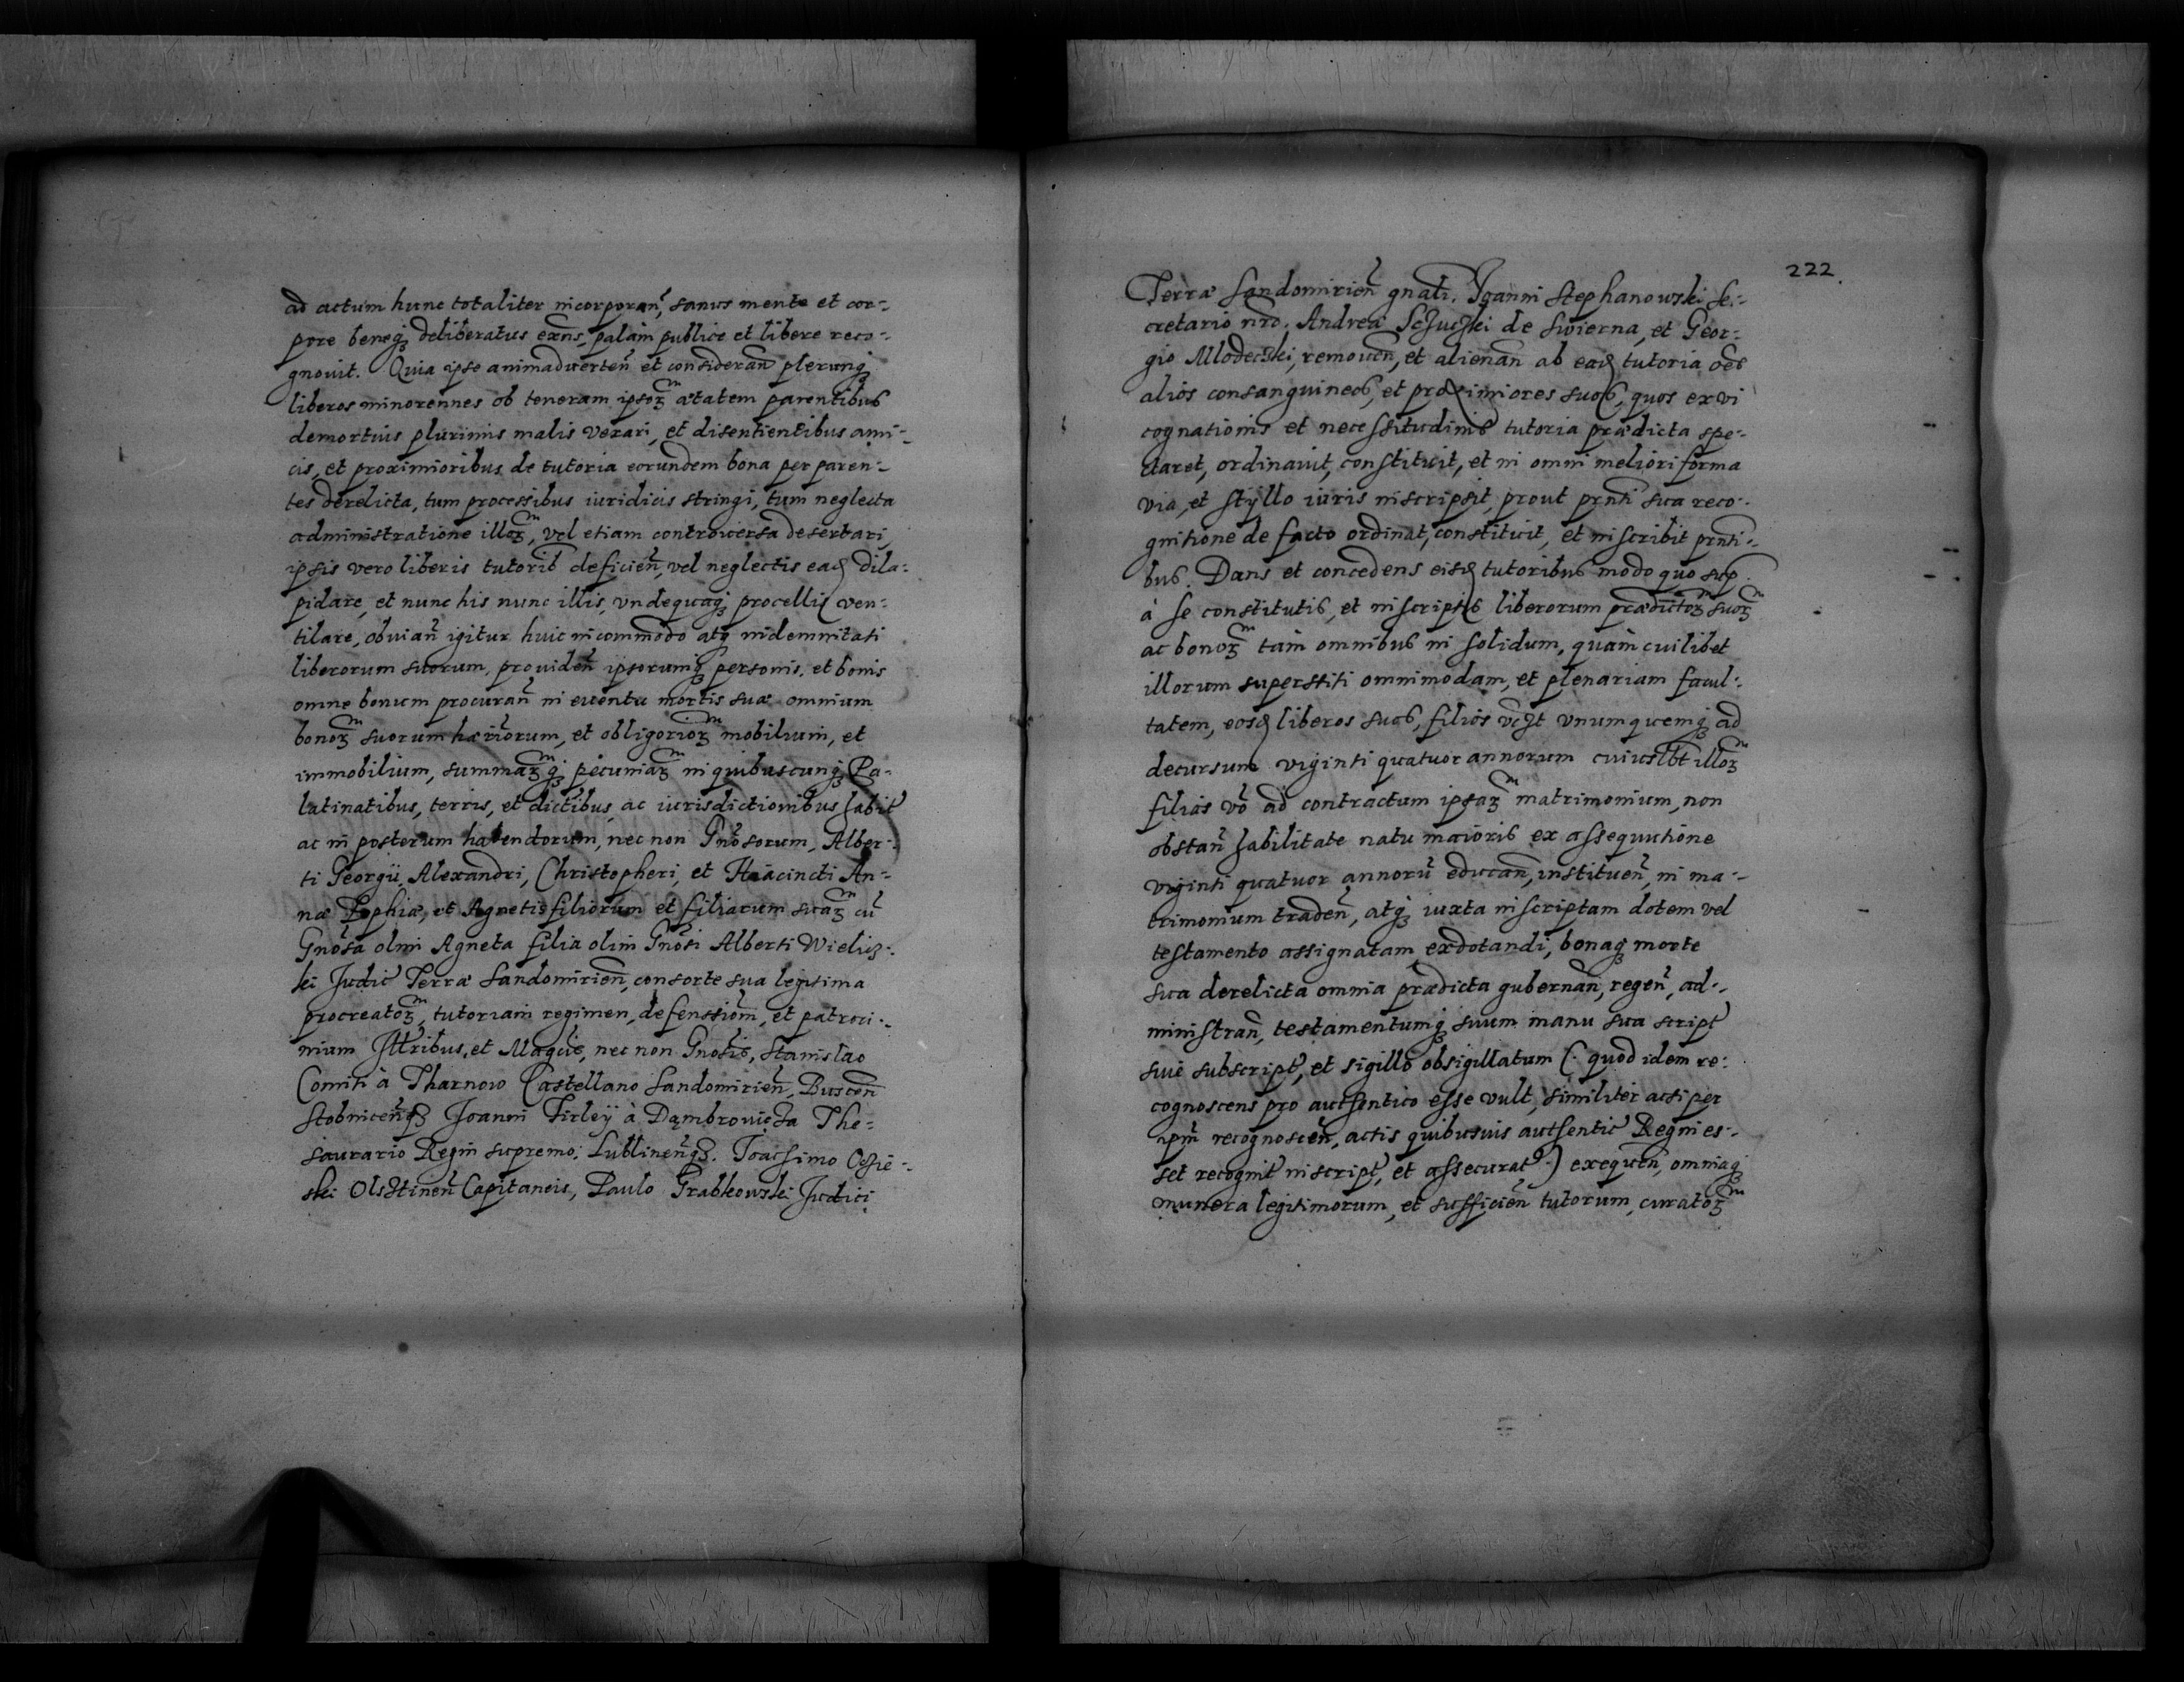 ad actum hunc totaliter incorporan̄, sanus mente et cor-
pore beneq́ꝫ deliberatus exn̄s, palàm publice et libere reco-
gnovit. Quia ipse animadverten̄ et consideran̄ plerunq́ꝫ
liberos minorennes ob teneram ipsoꝝ ætatem parentibus
demortuis plurimis malis vexari, et disentientibus ami-
cis, et proximioribus de tutoria eorundem bona per paren-
tes derelicta, tum processibus iuridicis stringi, tum neglecta
administratione illoꝝ, vel etiam controversa desertari,
ipsis vero liberis tutorib deficien̄, vel neglectis eaȡ dila-
pidare, et nunc his nunc illis, undequaq́ꝫ procellis ven-
tilare, obvian̄ igitur huic incommodo atq́ꝫ indemnitati
liberorum suorum, providen̄ ipsorumq́ꝫ personis, et bonis
omne bonum procuran̄ in eventu mortis suæ omnium
bonoꝝ suorum hæriorum, et obligorioꝝ mobilium, et
immobilium, summaꝝq́ꝫ pecuniaꝝ in quibuscunq́ꝫ Pa-
latinatibus, terris, et dictibus, ac iurisdictionibus habit
ac in posterum habendorum, nec non Gn̄osorum, Alber-
ti Georgii, Alexandri, Christopheri, et Hiacincti An-
næ Sophiæ, et Agnetis filiorum et filiarum suaꝝ cū
Gnōsa olim Agneta filia olim Gnōsi Alberti Wielicz-
ki Judic Terræ Sandomirien̄, consorte sua legitima
procreatoꝝ, tutoriam regimen, defensiom̄, et patroci-
nium Illtribus, et Magcis, nec non Gnosis, Stanislao
Comiti à Tharnow Castellano Sandomirien̄, Buscen̄
Stobnicen̄qꝫ Joanni Firleÿ à Dąmbrovicza The-
saurario Regni supremo, Lublinen̄qꝫ. Joachimo Oczie-
ski Olsztinen̄ Capitaneis, Paulo Grabkowski Judici
222
Terræ Sandomirien̄ gnāli. Joanni Stephanowski Se-
cretario nrō. Andreæ Sczuczki de Swierna, et Geor-
gio Mlodeczki, removen̄, et alienan̄ ab eaȡ tutoria oēs
aliós consanguineos, et proximiores suos, quos ex vi
cognationis et necessitudinis tutoria prædicta spe-
ctaret, ordinavit, constituit, et in omni meliori forma
via, et stÿllo iuris inscripsit, prout prn̄ti sua reco-
gnitione de facto ordinat, constituit, et inscribit prn̄ti-
bus. Dans et concedens eisȡ tutoribus modo quo sup
à se constitutis, et inscriptis liberorum prædictoꝝ suoꝝ
ac bonoꝝ tam omnibus in solidum, quàm cuilibet
illorum superstiti omnimodam, et plenariam facul-
tatem, eosȡ liberos suos, filiós vczt unumquemq́ꝫ ad
decursum viginti quatuor annorum cuiuslbt illoꝝ
filiás vō ad contractum ipsaꝝ matrimonium, non
obstan̄ habilitate natu maioris ex assequutione
viginti quatuor annorū educan̄, instituen̄, in ma-
trimonium traden̄, atq́ꝫ iuxta inscriptam dotem vel
testamento assignatam exdotandi, bonaq́ꝫ morte
sua derelicta omnia prædicta gubernan̄, regen̄, ad-
ministran̄, testamentumq́ꝫ suum manu sua script
sive subscript, et sigillo obsigillatum (: quod idem re-
cognoscens pro authentico esse vult, similiter acsi per
ipm̄ recognoscen̄, actis quibusvis authentic Regni es-
set recognit inscript, et assecurat :) exequen̄, omniaq́ꝫ
munera legitimorum, et sufficien̄ tutorum, curatoꝝ